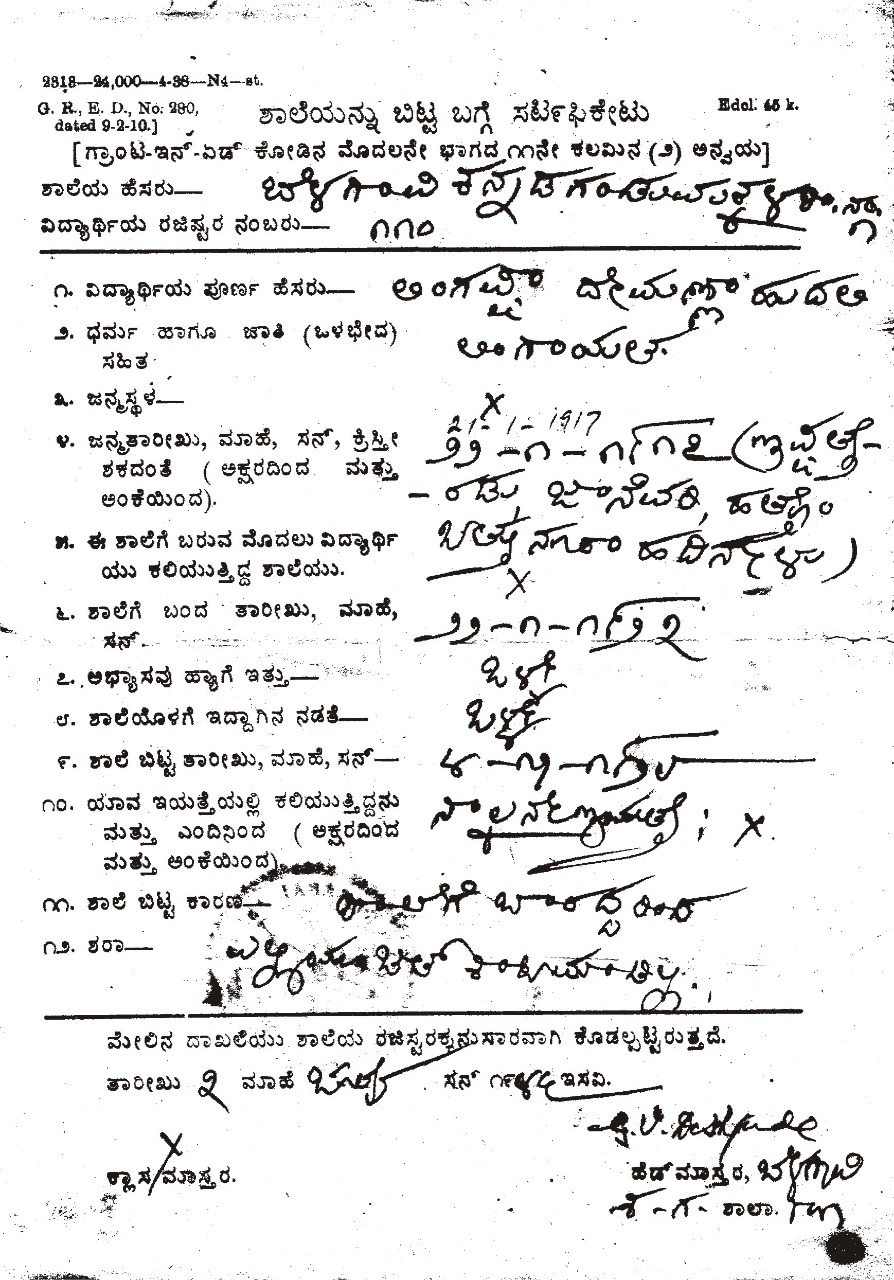 2318—24,000—4-38—N4—st.
G. R., E. D., No. 280,
dated 9-2-10.]
ಶಾಲೆಯನ್ನು ಬಿಟ್ಟ ಬಗ್ಗೆ ಸರ್ಟಿಫಿಕೇಟು
Edol. 45 k.
[ಗ್ರಾಂಟ-ಇನ್-ಏಡ್ ಕೋಡಿನ ಮೊದಲನೇ ಭಾಗದ ೧೧ನೇ ಕಲಮಿನ (೨) ಅನ್ವಯ]
ಶಾಲೆಯ ಹೆಸರು— ಬೆಳಗಾಂವಿ ಕನ್ನಡ ಗಂಡು ಮಕ್ಕಳ ಶಾ. ನಂ. ೧
ವಿದ್ಯಾರ್ಥಿಯ ರಜಿಷ್ಟರ ನಂಬರು— ೧೧೦
೧. ವಿದ್ಯಾರ್ಥಿಯ ಪೂರ್ಣ ಹೆಸರು— ಲಿಂಗಪ್ಪಾ ದೇಮಣ್ಣಾ ಹುದಲಿ
೨. ಧರ್ಮ ಹಾಗೂ ಜಾತಿ (ಒಳಭೇದ)
ಸಹಿತ ಲಿಂಗಾಯತ.
೩. ಜನ್ಮಸ್ಥಳ— x
21-1-1917
೪. ಜನ್ಮತಾರೀಖು, ಮಾಹೆ, ಸನ್, ಕ್ರಿಸ್ತೀ ೨೨-೧-೧೯೧೭ (ಇಪ್ಪತ್ತೆ-
ಶಕದಂತೆ ( ಅಕ್ಷರದಿಂದ ಮತ್ತು -ರಡು, ಜಾನೆವರಿ, ಹತ್ತೊಂ
ಅಂಕೆಯಿಂದ).
೫. ಈ ಶಾಲೆಗೆ ಬರುವ ಮೊದಲು ವಿದ್ಯಾರ್ಥಿ ಬತ್ತು ನೂರಾ ಹದಿನೇಳು)
ಯು ಕಲಿಯುತ್ತಿದ್ದ ಶಾಲೆಯು. x
೬. ಶಾಲೆಗೆ ಬಂದ ತಾರೀಖು, ಮಾಹೆ,
ಸನ್. ೨೨-೧-೧೯೨೨
೭. ಅಭ್ಯಾಸವು ಹ್ಯಾಗೆ ಇತ್ತು— ಒಳ್ಳೇ
೮. ಶಾಲೆಯೊಳಗೆ ಇದ್ದಾಗಿನ ನಡತೆ— ಒಳ್ಳೇ
೯. ಶಾಲೆ ಬಿಟ್ಟ ತಾರೀಖು, ಮಾಹೆ, ಸನ್—
೧೦. ಯಾವ ಇಯತ್ತೆಯಲ್ಲಿ ಕಲಿಯುತ್ತಿದ್ದನು ನಾಲ್ಕನೇ ಇಯತ್ತೆ; x.
ಮತ್ತು ಎಂದಿನಿಂದ ( ಅಕ್ಷರದಿಂದ
ಮತ್ತು ಅಂಕೆಯಿಂದ)
೧೧. ಶಾಲೆ ಬಿಟ್ಟ ಕಾರಣ— ಶಾಲೆಗೆ ಬಾರದ್ದರಿಂದ
೧೨. ಶರಾ—
ಮೇಲಿನ ದಾಖಲೆಯು ಶಾಲೆಯ ರಜಿಸ್ಟರಕ್ಕನುಸಾರವಾಗಿ ಕೊಡಲ್ಪಟ್ಟಿರುತ್ತದೆ.
ತಾರೀಖು ೨ ಮಾಹೆ ಸನ್ ೧೯೪೬ ಇಸವಿ.
x
ಕ್ಲಾಸ ಮಾಸ್ತರ.
ಹೆಡ್ ಮಾಸ್ತರ, ಬೆಳಗಾವಿ
ಶಾಲಾ.